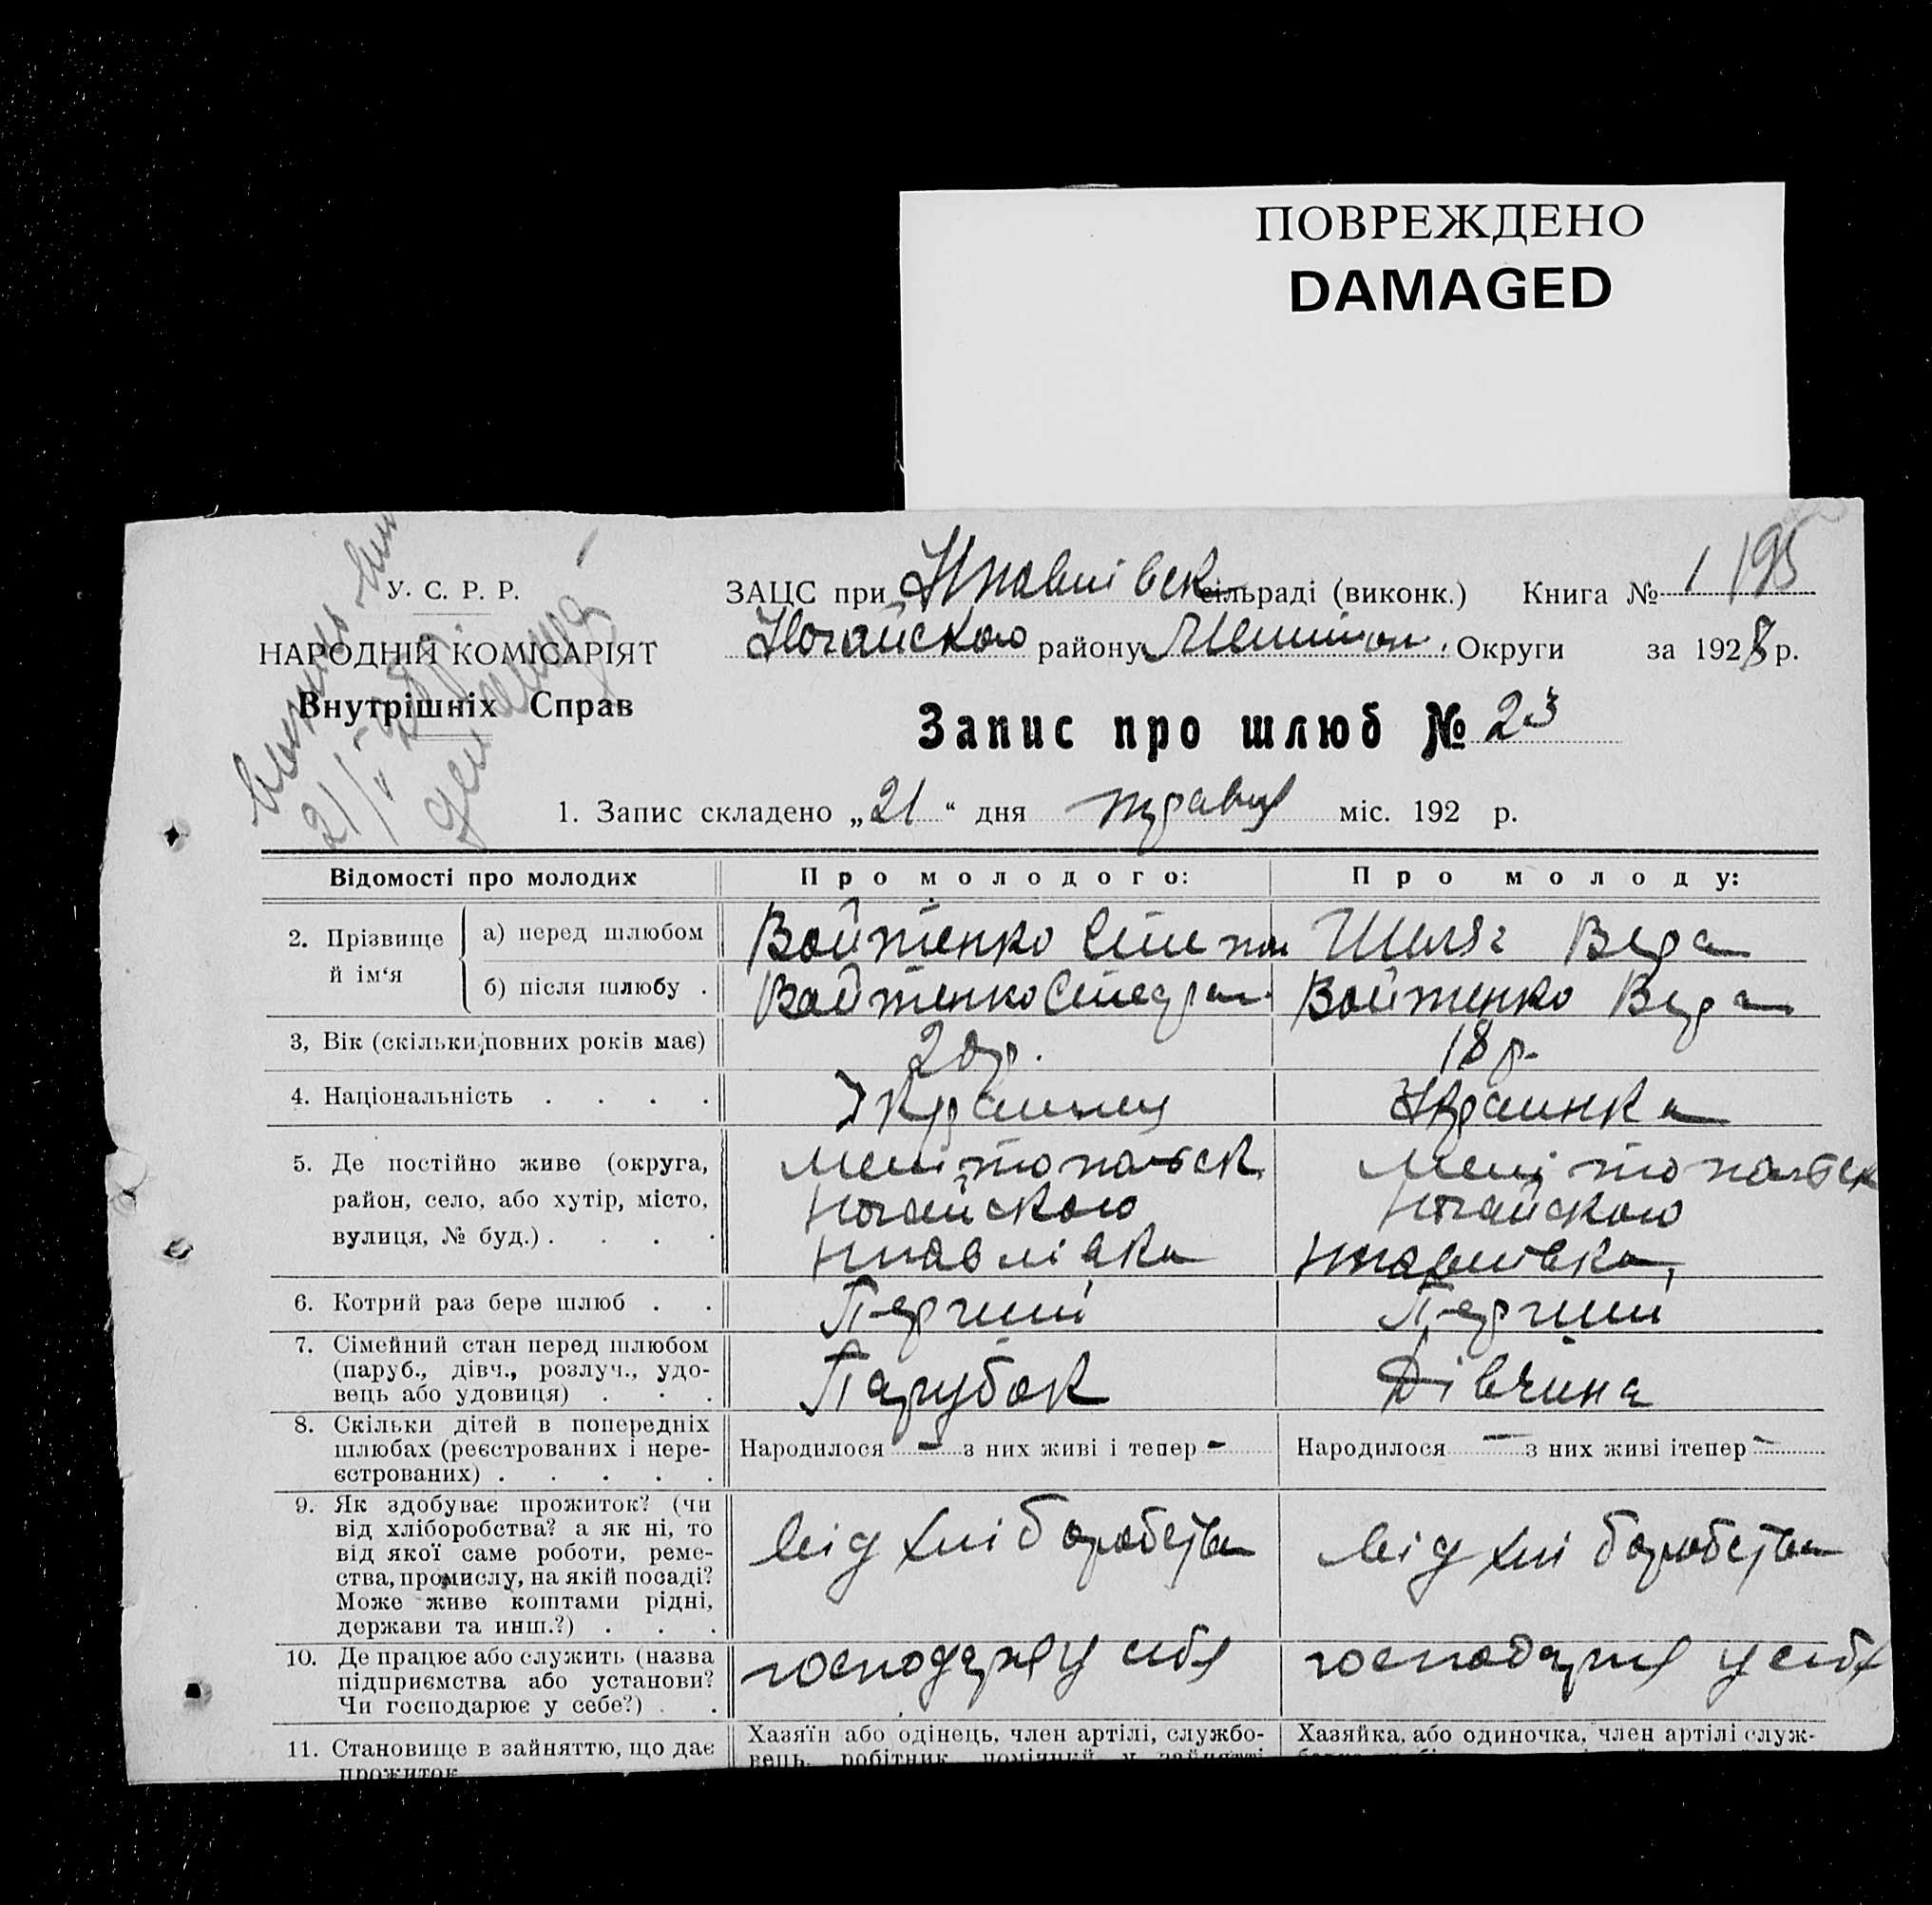 ПОВРЕЖДЕНО
DAMAGED
У. С. Р. Р.
НАРОДНІЙ КОМІСАРІЯТ
Внутрішніх Справ
ЗАЦС при сільраді (виконк.) Книга № 1 195
Ногайского району Округи за 1928 р.
Запис про шлюб № 23
1. Запис складено „21“ дня травня міс. 192 р.
Відомості про молодих Про молодого: Про молоду:
2. Прізвище й ім‘я
а) перед шлюбом Войтенко Шеляг Вера
б) після шлюбу . Войтенко Войтенко Вера
3, Вік (скільки повних років має) 20 р. 18 р.
4. Національність . . . . Українец Украинка
5. Де постійно живе (округа, Мелітопольск Мелітопольск
район, село, або хутір, місто, Ногайского Ногайского
вулиця, № буд.) . . . .
6. Котрий раз бере шлюб . . Перший Перший
7. Сімейний стан перед шлюбом
(паруб., дівч., розлуч., удо-
вець або удовиця) . . . Парубок Дівчина
8. Скільки дітей в попередніх
шлюбах (реєстрованих і нере-
єстрованих) . . . . .
Народилося - з них живі і тепер -
Народилося - з них живі ітепер -
9. Як здобуває прожиток? (чи
від хліборобства? а як ні, то
від якої саме роботи, реме-
ства, промислу, на якій посаді?
Може живе коштами рідні,
держави та инш.?) . . .
від хліборобства від хліборобства
10. Де працює або служить (назва
підприємства або установи?
Чи господарює у себе?) . .
господарює у себе господарює у себе
11. Становище в зайняттю, що дає
прожиток
Хазяїн або одінець, член артілі, службо-
вець, робітник, помічний у зайнятті
Хазяйка, або одиночка, член артілі служ-